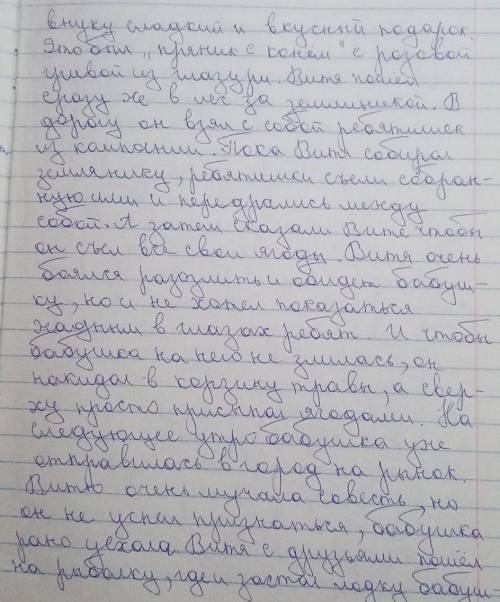 внуку сладкий и вкусный подарок.
Это был „пряник с конём" с розовой
гривой из глазури. Витя пошёл
сразу же в лес за земляникой. В
дорогу он взял с собой ребятишек
из кампании. Пока Витя собирал
землянику, ребятишки съели собран-
ную ими и передрались между
собой. А затем сказали Вите чтобы
он съел все свои ягоды. Витя очень
боялся разозлить и обидет бабуш-
ку, но и не хотел показаться
жадным в глазах ребят. И чтобы
бабушка на него не злилась, он
накидал в корзинку травы, а свер-
ху просто присыпал ягодами. На
следующее утро бабушка уже
отправилась в город на рынок.
Витю очень мучала совесть, но
он не успел признаться, бабушка
рано уехала. Витя с друзьями пошёл
на рыбалку, где и застал лодку бабуш-